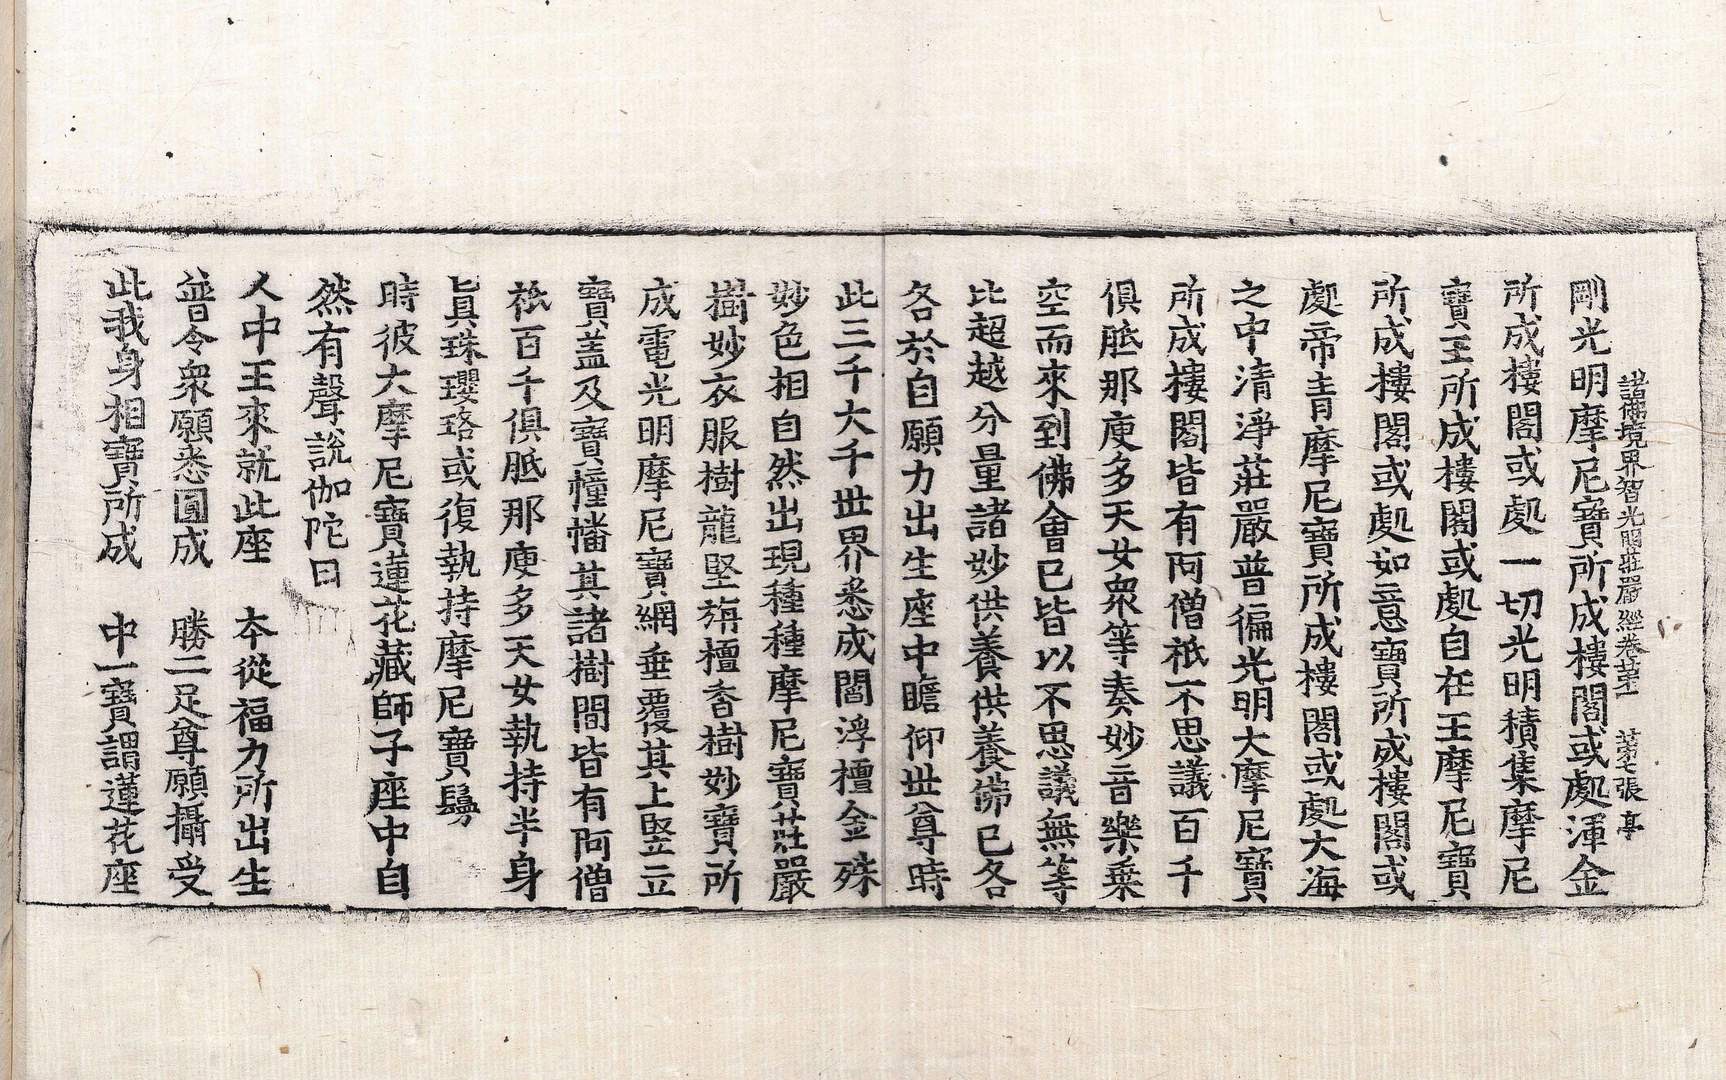 諸佛境界智光明莊嚴經卷苐一　苐七張　亭
剛光明摩尼寶所成樓閣或處渾金
所成樓閣或處一切光明積集摩尼
寶王所成樓閣或處自在王摩尼寶
所成樓閣或處如意寶所成樓閣或
處帝青摩尼寶所成樓閣或處大海
之中清淨莊嚴普徧光明大摩尼寶
所成樓閣皆有阿僧祇不思議百千
俱胝那庾多天女衆等奏妙音樂乗
空而來到佛會已皆以不思議無等
比超越分量諸妙供養供養佛已各
各於自願力出生座中瞻仰世尊時
此三千大千世界悉成閻浮檀金殊
妙色相自然出現種種摩尼寶莊嚴
樹妙衣服樹龍堅旃檀香樹妙寶所
成電光明摩尼寶網垂覆其上竪立
寶盖及寶幢幡其諸樹間皆有阿僧
祇百千俱胝那庾多天女執持半身
眞珠瓔珞或復執持摩尼寶鬘
時彼大摩尼寶蓮花藏師子座中自
然有聲說伽陀曰
人中王來就此座　夲從福力所出生
普令衆願悉圓成　勝二足尊願攝受
此我身相寶所成　中一寶謂蓮花座